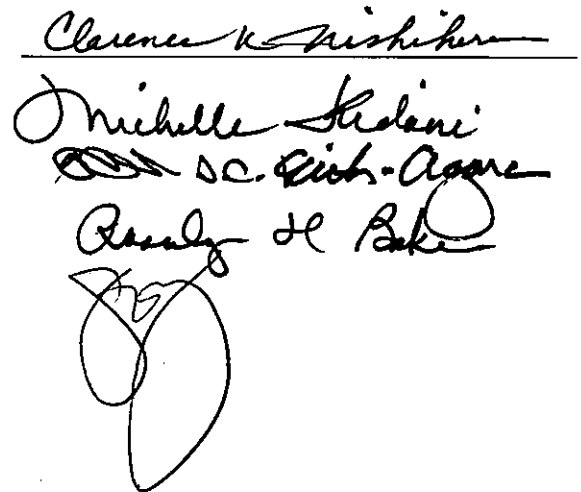 Clarence K Nishihara
Michelle Kidani
D.C. Keith-Agara
Rosalyn H Baker